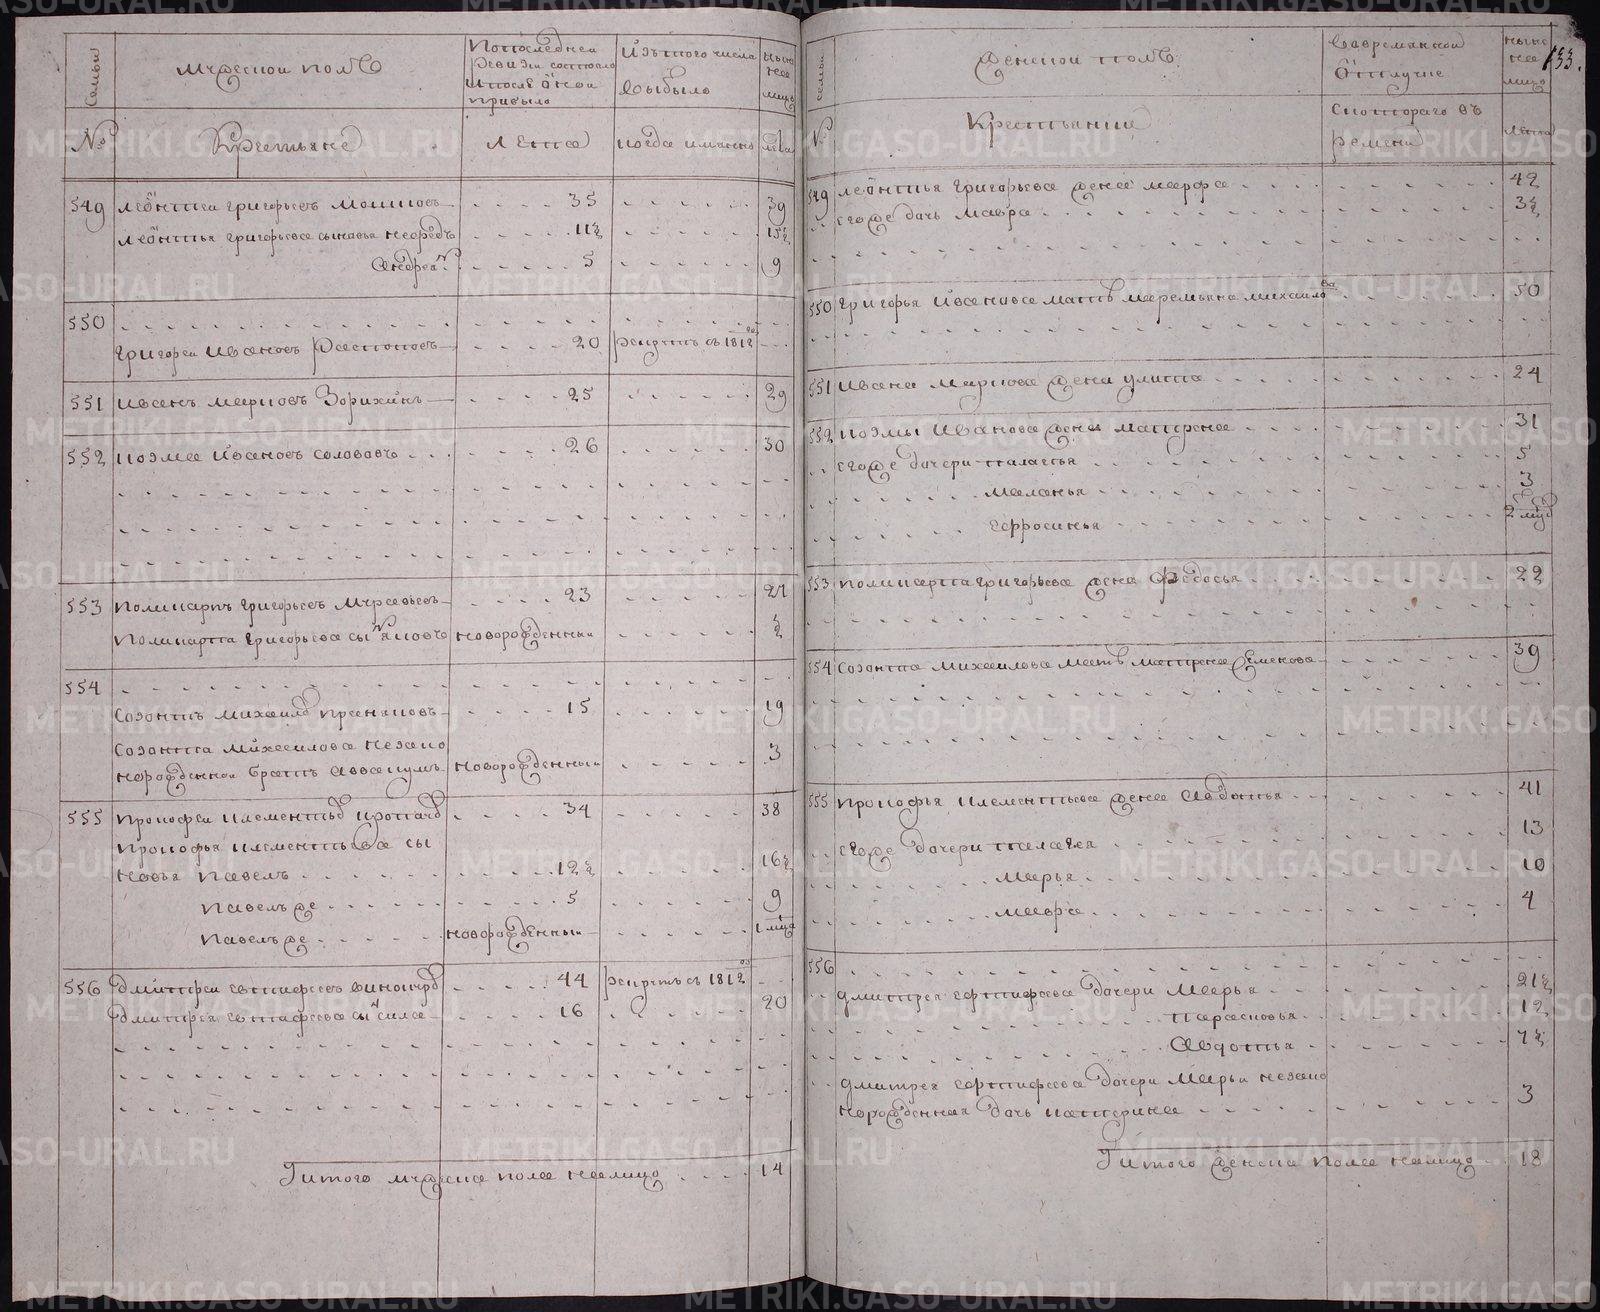 Семьи
мужескои полъ
Попоследнеи
ревизи состояло
ипосле онои
прибыло
Изътого числа
выбыло
ныне
лицо
№
Крестьяне
лета
когда имянно
лета
549 леонтеи григорьевъ 35 39
леонтья григорьева сыновья 11½ 15½
Андреи 5 9
550
григореи Ивановъ 20 рекрутъ съ 1812 го
551 иванъ марковъ Зорихинъ 25 29
552 козма Ивановъ соловьевъ 26 30
553 поликарпъ григорьевъ 23 27
поликарпа григорьева сынъ новорожденныи ½
554
созонтъ михаиловъ 15 19
созонта михаилова незако
норожденнои братъ аввакумъ новорожденныи 3
555 прокофеи клементьевъ 34 38
прокофья клементьева сы
новья павелъ 12½ 16½
павелъ же 5 9
павелъ же новорожденныи 1 мца
556 дмитреи евтифеевъ 44 рекрутъ съ 1812 го
дмитрея евтифеева сынъ сила 16 20
Итого мужеска пола налицо 14
семьи
женскои полъ
вовременнои
отлучке
ныне
лицо
133.
№
Крестьянки
скотораго въ
ремени
лета
549 леонтья григорьева жена марфа 42
егоже дочь мавра 3½
550 григорья Иванова мать маремьяна михаилова 50
551 ивана маркова жена улита 24
552 козмы Иванова жена матрена 31
егоже дочери палагья 5
маланья 3
ефросинья 2 мцъ
553 поликарпа григорьева жена федосья 22
554 созонта михаилова мать матрена семенова 39
555 прокофья клементьева жена авдотья 41
егоже дочери пелагея 13
марья 10
мавра 4
556
дмитрея евтифеева дочери марья 21½
парасковья 12
авдотья 7½
дмитрея евтифеева дочери марьи незако
норожденная дочь катерина 3
Итого женска пола налицо 18
METRIKI.GASO-URAL.RU